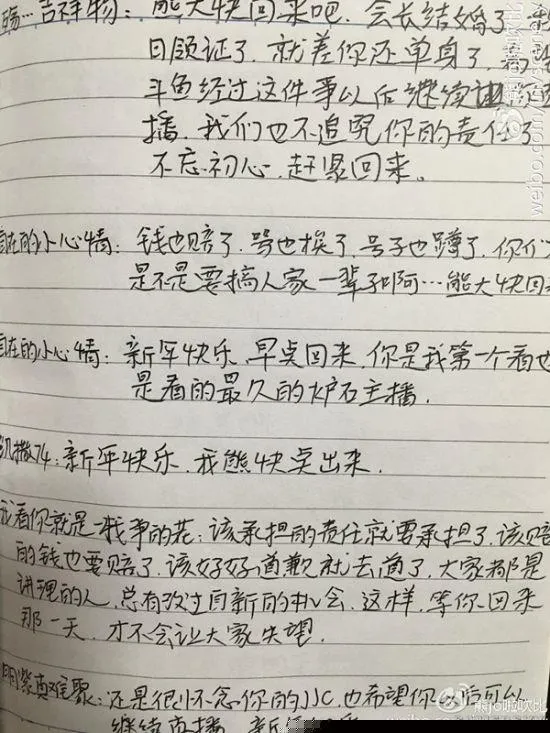 吉祥物：熊大快回来吧，会长结婚了
日领证了，就差你还单身了，希
斗鱼经过这件事以后继续让你
播，我们也不追究你的责任了
不忘初心，赶紧回来。
自在的小心情：钱也赔了，骂也挨了，号子也蹲了，你们
是不是要搞人家一辈子啊…熊大快回
自在的小心情：新年快乐，早点回来，你是我第一个看也
是看的最久的炉石主播．
撒74：新年快乐，我熊快点出来．
我看你就是一战争的花：该承担的责任就要承担了，该赔
的钱也要赔了，该好好道歉就去道了，大家都是
讲理的人，总有改过自新的机会，这样，等你回来
那一天，才不会让大家失望．
聚：还是很怀念你的JJC，也希望你以后可以
继续直播，新
weibo.com/
熊jo啦吹比